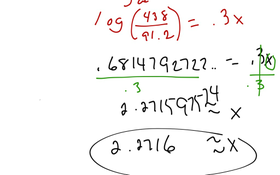 log(438/91.2) = .3x
.6814792722.. = .3x
.3 .3
2.271597574 ≈ x
2.2716 ≈ x